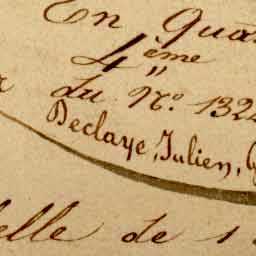 En Qua
4ème
du No. 132
Declaye, Julien,
elle de 1